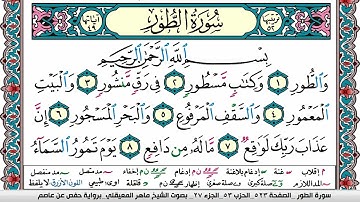 ترتيبها ٥٢ سُورَةُ الطُّورِ آياتها ٤٩
بِسْمِ اللَّهِ الرَّحْمَٰنِ الرَّحِيمِ
وَالطُّورِ ١ وَكِتَابٍ مَّسْطُورٍ ٢ فِي رَقٍّ مَّنشُورٍ ٣ وَالْبَيْتِ
الْمَعْمُورِ ٤ وَالسَّقْفِ الْمَرْفُوعِ ٥ وَالْبَحْرِ الْمَسْجُورِ ٦ إِنَّ
عَذَابَ رَبِّكَ لَوَاقِعٌ ٧ مَّا لَهُ مِن دَافِعٍ ٨ يَوْمَ تَمُورُ السَّمَاءُ
سورة الطور الصفحة ٥٢٣ الحزب ٥٣ الجزء ٢٧ بصوت الشيخ ماهر المعيقلي برواية حفص عن عاصم